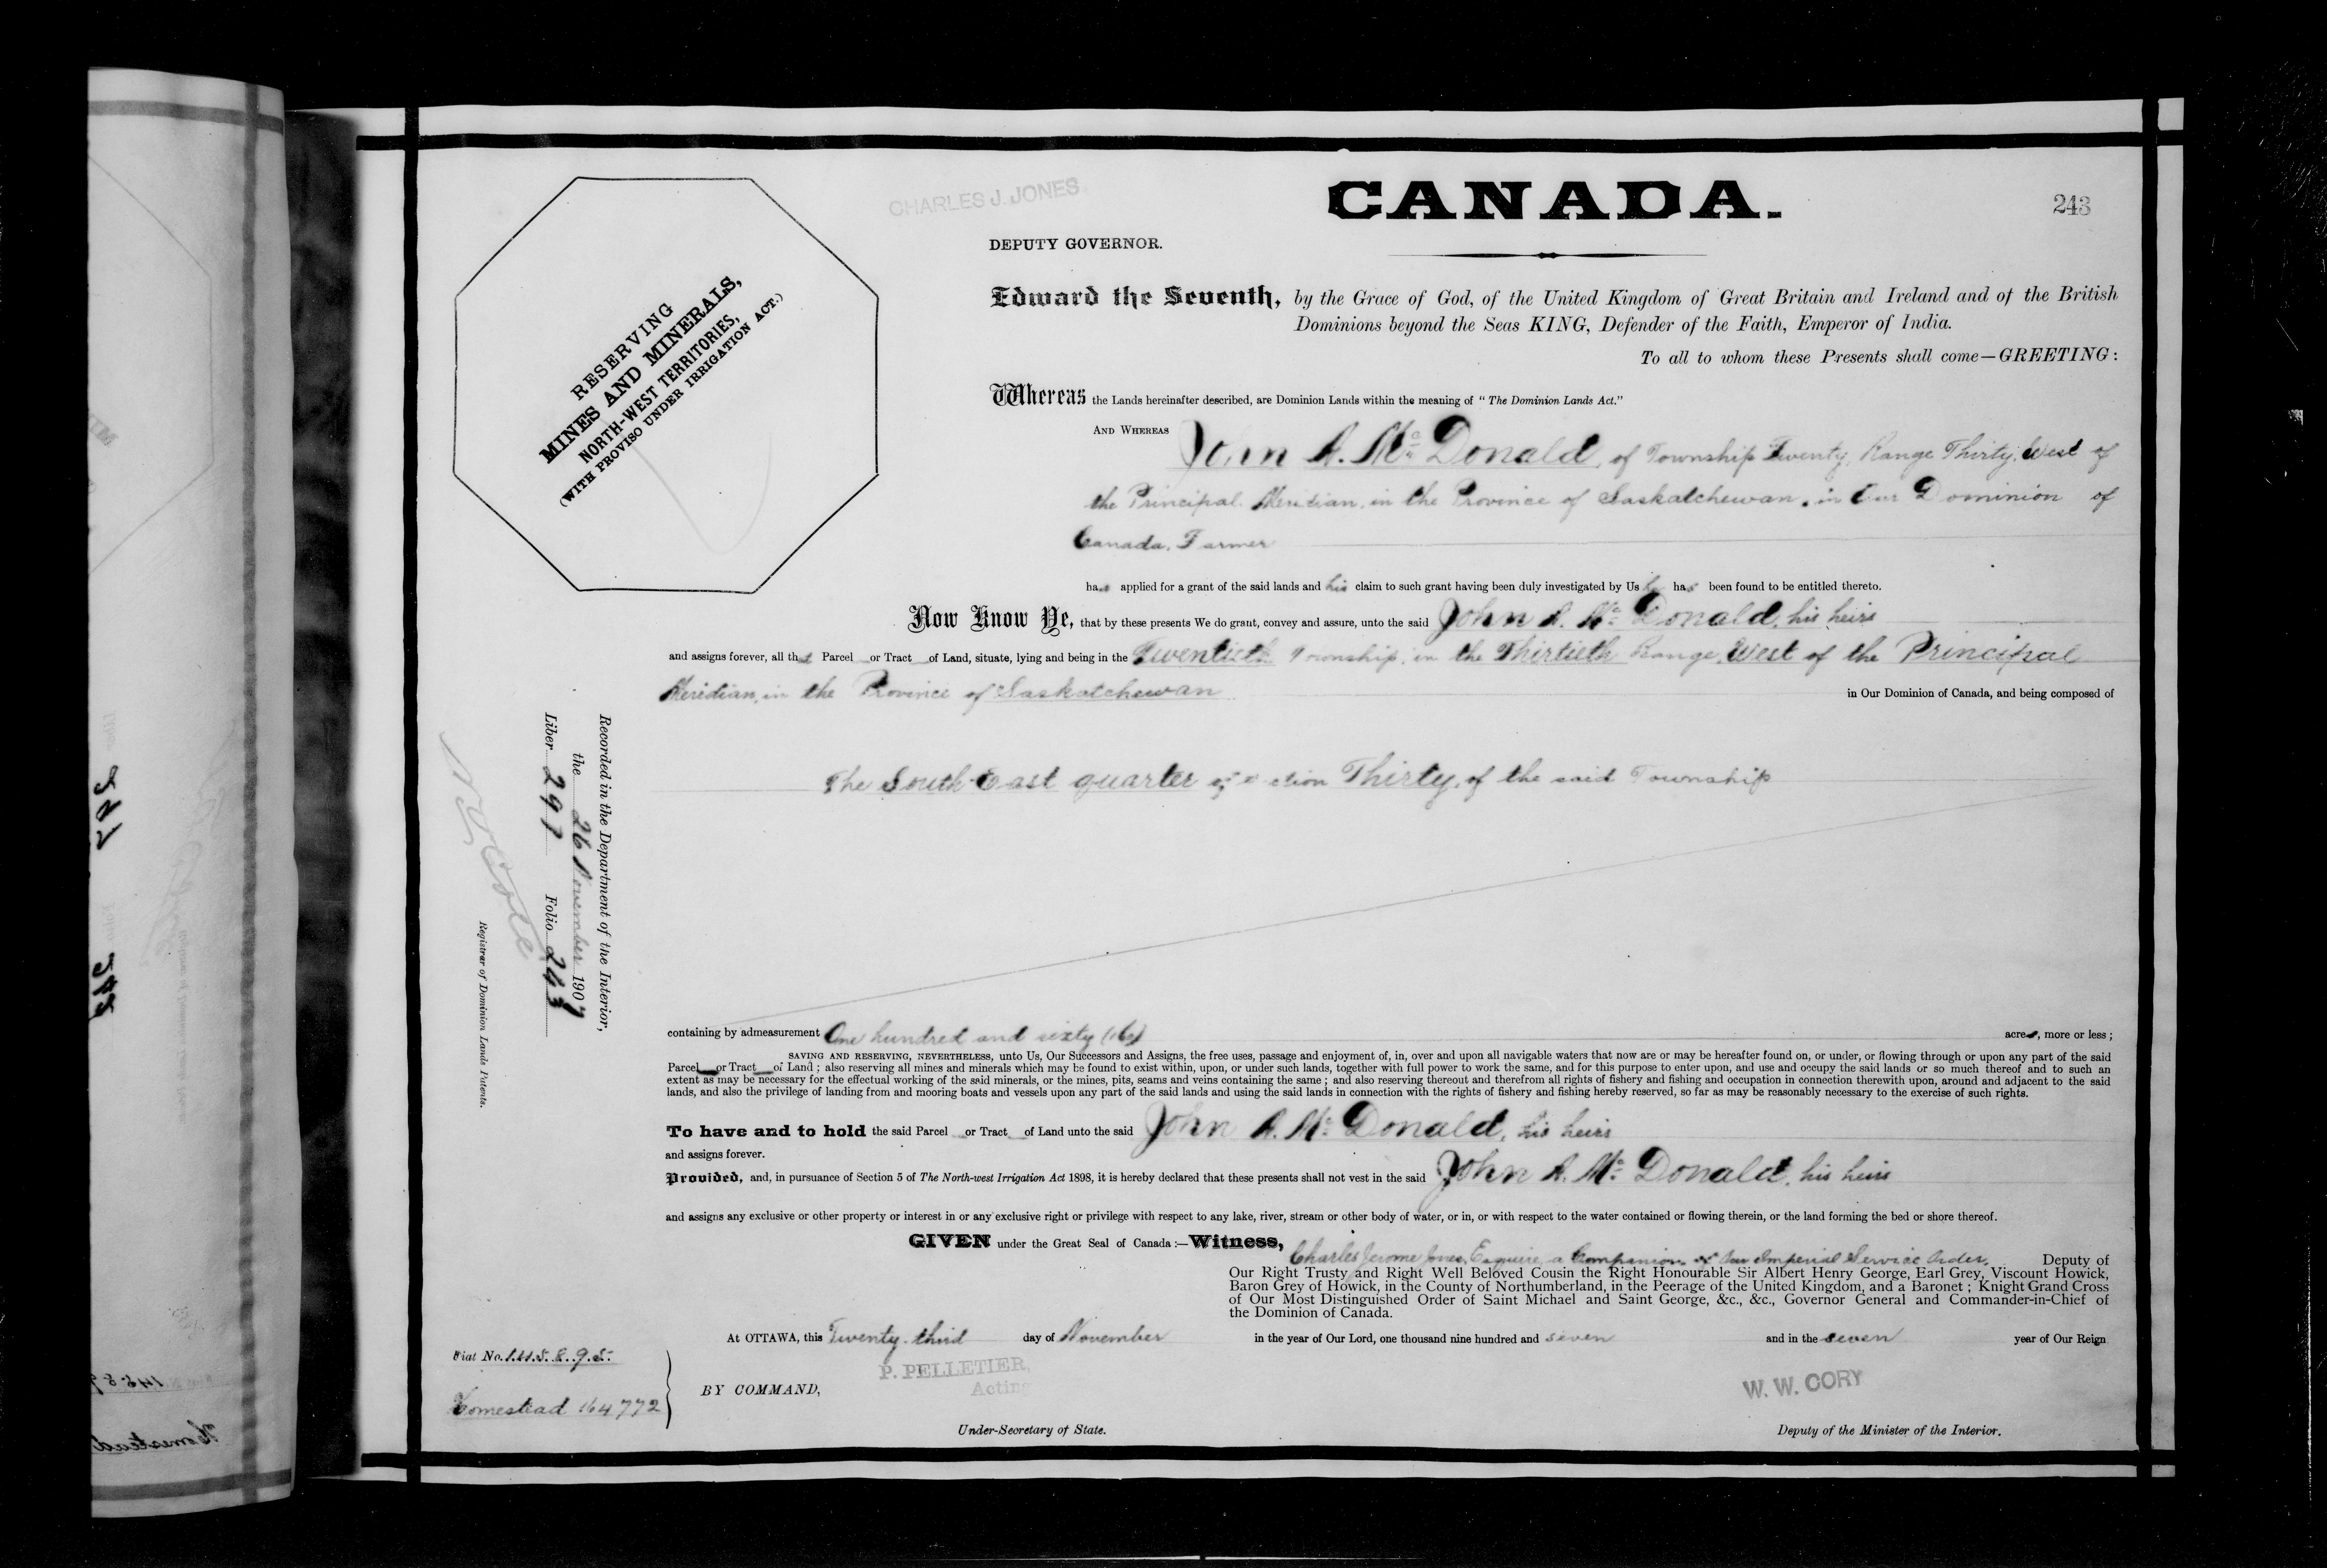 CHARLES J. JONES
CANADA.
243
DEPUTY GOVERNOR.
RESERVING
MINES AND MINERALS,
NORTH-WEST TERRITORIES,
(WITH PROVISO UNDER IRRIGATION ACT.)
Edward the Seventh, by the Grace of God, of the United Kingdom of Great Britain and Ireland and of the British
Dominions beyond the Seas KING, Defender of the Faith, Emperor of India.
To all to whom these Presents shall come—GREETING:
Whereas the Lands hereinafter described, are Dominion Lands within the meaning of "The Dominion Lands Act."
AND WHEREAS John A. Mc Donald, of Township Twenty, Range Thirty, West of
the Principal Meridian, in the Province of Saskatchewan, in Our Dominion of
Canada, Farmer
has applied for a grant of the said lands and his claim to such grant having been duly investigated by Us he has been found to be entitled thereto.
Now Know Ye, that by these presents We do grant, convey and assure, unto the said John A. Mc Donald, his heirs
and assigns forever, all that Parcel or Tract of Land, situate, lying and being in the Twentieth Township, in the Thirtieth Range, West of the Principal
Meridian, in the Province of Saskatchewan in Our Dominion of Canada, and being composed of
The South-East quarter of Section Thirty, of the said Township
containing by admeasurement One hundred and sixty (160) acres, more or less;
SAVING AND RESERVING, NEVERTHELESS, unto Us, Our Successors and Assigns, the free uses, passage and enjoyment of, in, over and upon all navigable waters that now are or may be hereafter found on, or under, or flowing through or upon any part of the said
Parcel or Tract of Land; also reserving all mines and minerals which may be found to exist within, upon, or under such lands, together with full power to work the same, and for this purpose to enter upon, and use and occupy the said lands or so much thereof and to such an
extent as may be necessary for the effectual working of the said minerals, or the mines, pits, seams and veins containing the same; and also reserving thereout and therefrom all rights of fishery and fishing and occupation in connection therewith upon, around and adjacent to the said
lands, and also the privilege of landing from and mooring boats and vessels upon any part of the said lands and using the said lands in connection with the rights of fishery and fishing hereby reserved, so far as may be reasonably necessary to the exercise of such rights.
To have and to hold the said Parcel or Tract of Land unto the said John A. Mc Donald, his heirs
and assigns forever.
Provided, and, in pursuance of Section 5 of The North-west Irrigation Act 1898, it is hereby declared that these presents shall not vest in the said John A. Mc Donald, his heirs
and assigns any exclusive or other property or interest in or any exclusive right or privilege with respect to any lake, river, stream or other body of water, or in, or with respect to the water contained or flowing therein, or the land forming the bed or shore thereof.
GIVEN under the Great Seal of Canada:—Witness, Charles Jerome Jones, Esquire, a Companion of Our Imperial Service Order, Deputy of
Our Right Trusty and Right Well Beloved Cousin the Right Honourable Sir Albert Henry George, Earl Grey, Viscount Howick,
Baron Grey of Howick, in the County of Northumberland, in the Peerage of the United Kingdom, and a Baronet; Knight Grand Cross
of Our Most Distinguished Order of Saint Michael and Saint George, &c., &c., Governor General and Commander-in-Chief of
the Dominion of Canada.
At OTTAWA, this Twenty-third day of November in the year of Our Lord, one thousand nine hundred and seven and in the seven year of Our Reign
P. PELLETIER,
Acting
BY COMMAND,
W. W. CORY
Under-Secretary of State.
Deputy of the Minister of the Interior.
Fiat No. 145895
Homestead 164772
Recorded in the Department of the Interior,
the 26 November 1907
Liber 297 Folio 243
N. O. Coté
Registrar of Dominion Lands Patents.